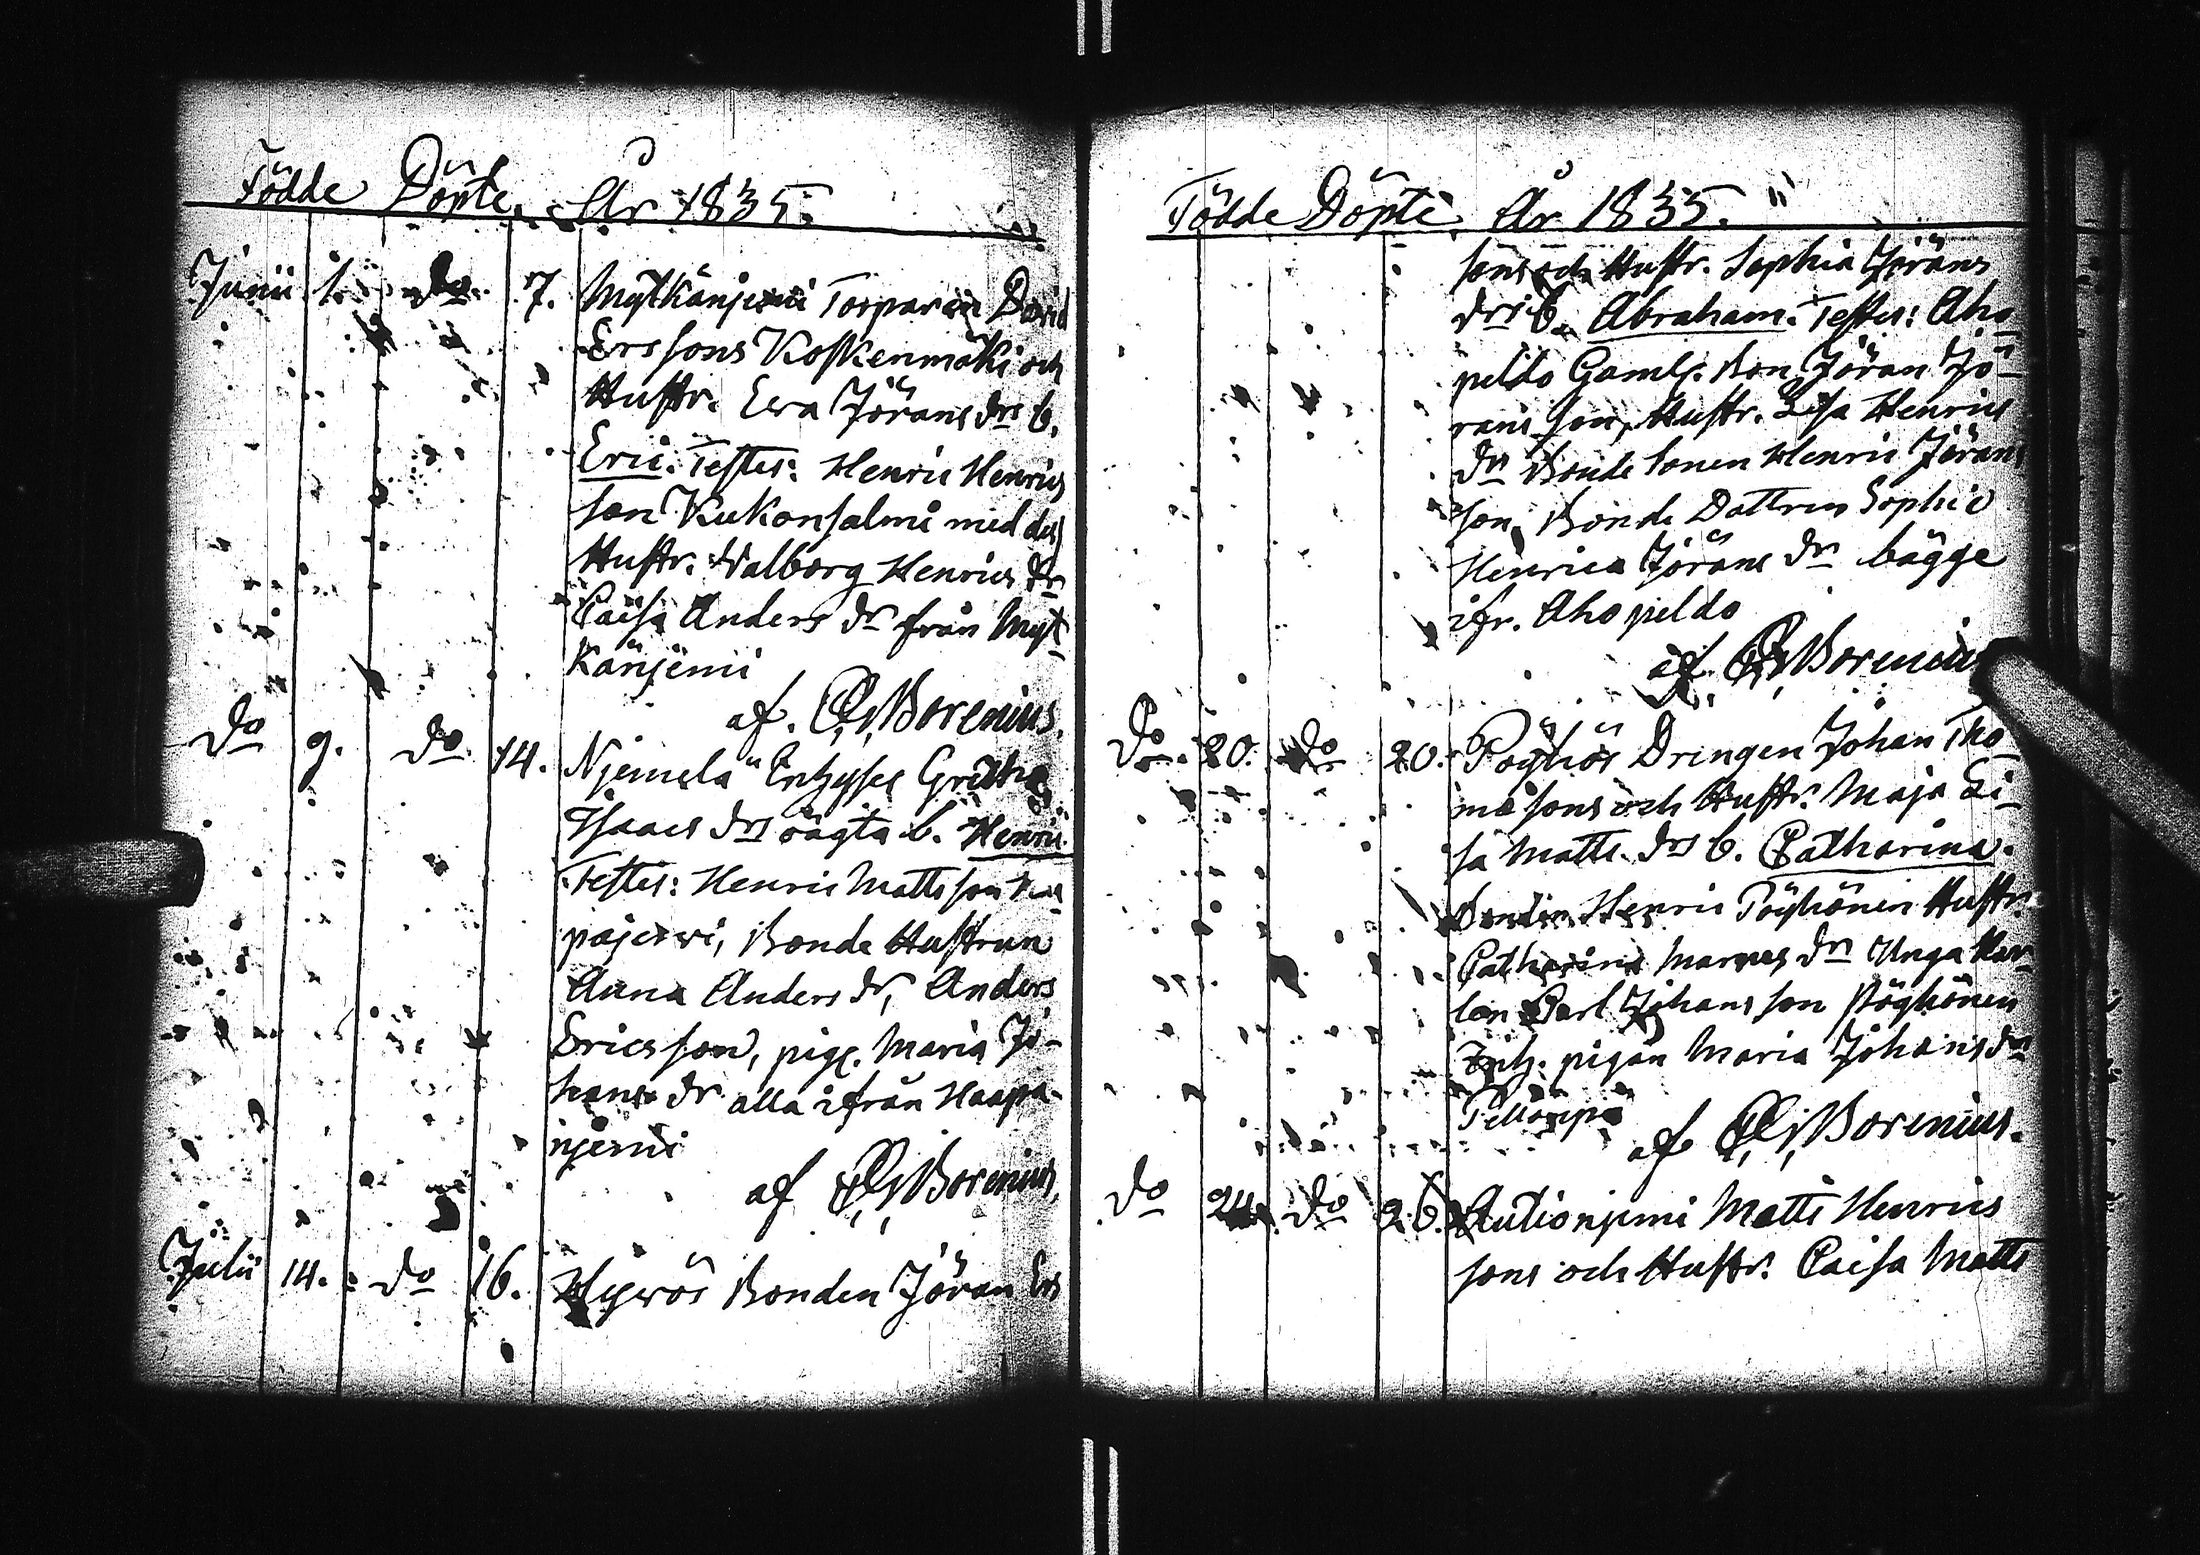 Födde Döpte År 1835.
Junii 1. do 7. Mytkänjemi Torparen David
Erssons Koskenmäki och
Hustr. Ewa Jörans drs b.
Eric. Testes: Henric Henrics
son Kukonsalmi med dess
Hustr. Walborg Henrics dr
Caisa Anders dr från Myt
känjemi
af. Borenius.
do 9. do 14. Njemelä Enhyses Gretha
Isaacs drs oägta b. Henric
Testes: Henric Matts son
pajerwi, Bonde Hustrun
Anna Anders dr, Anders
Ericsson, pig. Maria Jo-
hans dr alla ifrån Haapa-
njemi
af Borenius,
Julii 14. do 16. Hywös Bonden Jöran Ers
Födde Döpte År 1835.
sons och Hustr. Sophia Jörans
drs b. Abraham. Testes: Aho
peldo Gaml. Bon. Jöran Jö-
rans son, Hustr. Lisa Henrics
dr Bonde Sonen Henric Jörans
son, Bonde Dottren Sophie
Henrica Jörans dr bägge
ifr. Ahopeldo
af Borenius
do 20. do 20. Pöyhös Drengen Johan Tho-
mæ sons och Hustr. Maja Li-
sa Matts drs b. Catharina.
Bonden Henric Pöyhönen Hustr.
Catharina dr Unga Kar-
len Carl Johans son Pöyhönen
Inh. pigan Maria Johans dr
af Borenius.
do 24. do 26. Autionjemi Matts Henrics
sons och Hustr. Caisa Matts